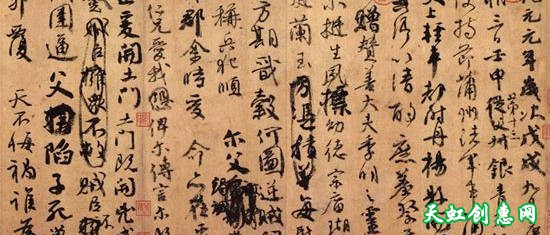 元元年歲次戊戌九
三日壬申第十三從父叔銀青
使持節蒲州諸軍事
史上輕車都尉丹楊縣
以清酌庶羞祭
贈贊善大夫季明之靈
爾挺生夙標幼德宗廟瑚
庭蘭玉方憑積善每慰
方期戩穀何圖逆賊
稱兵犯順爾父
郡余時受命亦在平
仁兄愛我俾爾傳言爾
止爰開土門土門既開凶威
賊臣擁眾不救賊臣不
圍逼父陷子死
卵覆天不悔禍誰為
天虹创意网